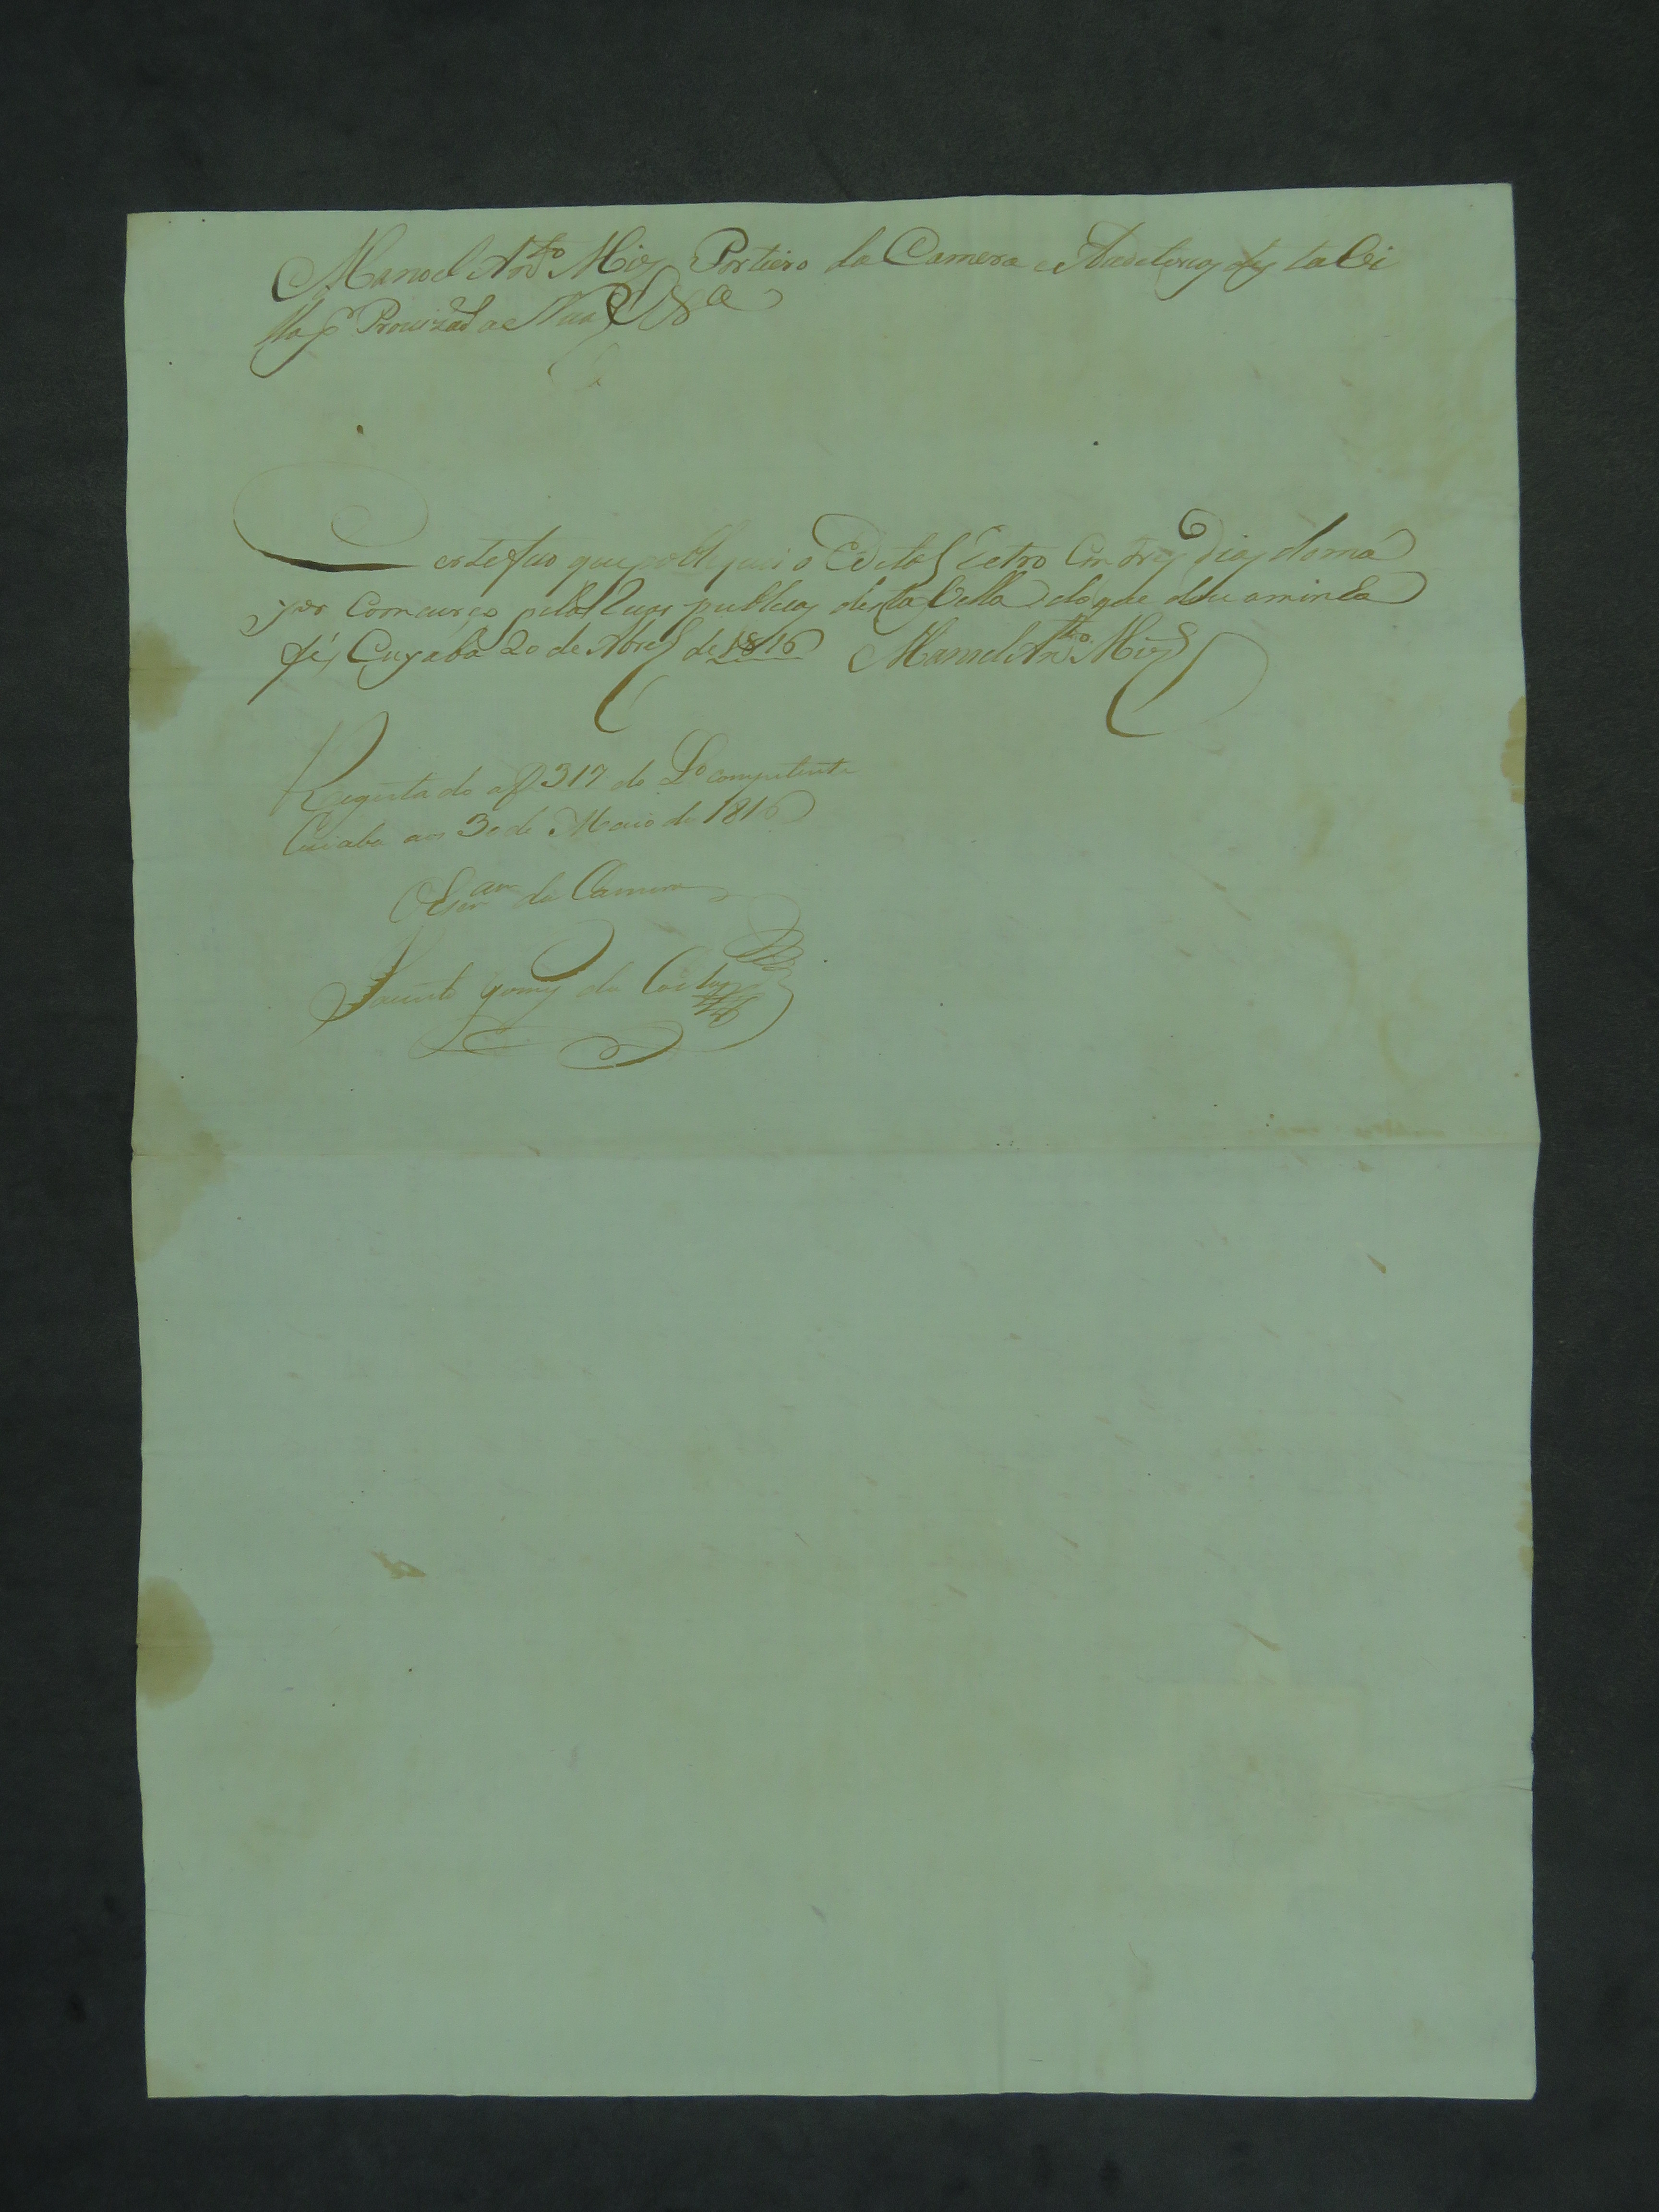 Manoel Anto Miz Portiero da Camera e Audetorios desta Vi
lla p Provizão &a
Certefico que publiquei o Edital Retro Em tres Dias do ma
yor Comcurço pellas Ruas publicas desta Villa do que dou aminha
fé, Cuyabá 20 de Abril de 1816 Manoel Anto Miz
Registado af 317 do Lo competente
Cuiaba aos 30 de Maio de 1816
O Escram da Camera
Jacinto Gomes da Costa